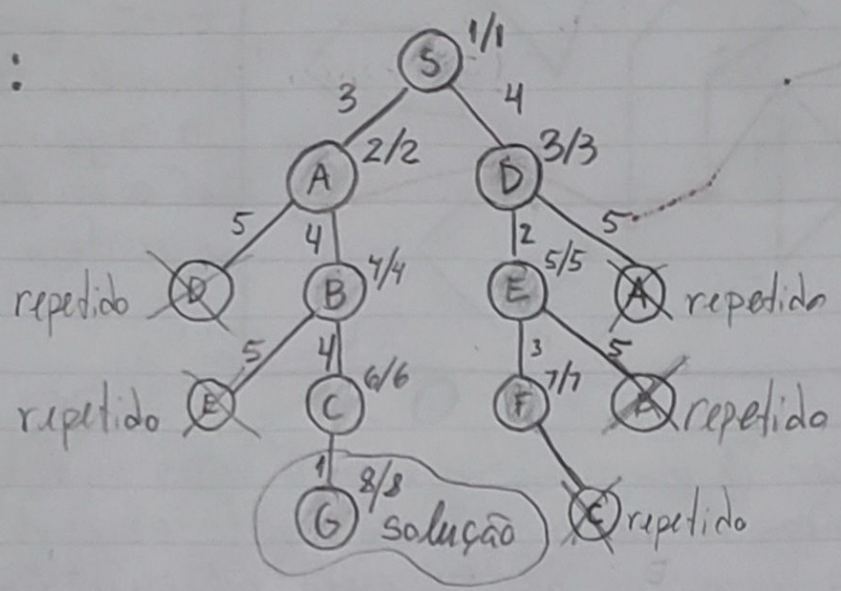 :
S 1/1
3 4
A 2/2 D 3/3
5 4 2 5
repetido D B 4/4 E 5/5 A repetido
5 4 3 5
repetido E C 6/6 F 7/7 repetido
1
G 8/8 solução repetido